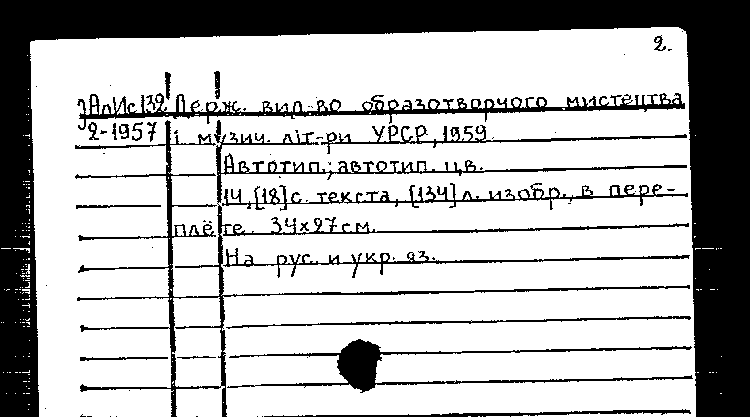 2.
ЗАлИс132 Держ. вид-во образотворчого мистецтва
2-1957 і музич. літ-ри УРСР, 1959
Автотип.; автотип. цв.
14,[18]с. текста, [134]л. изобр., в пере-
плёте. 34х27см.
На рус. и укр. яз.